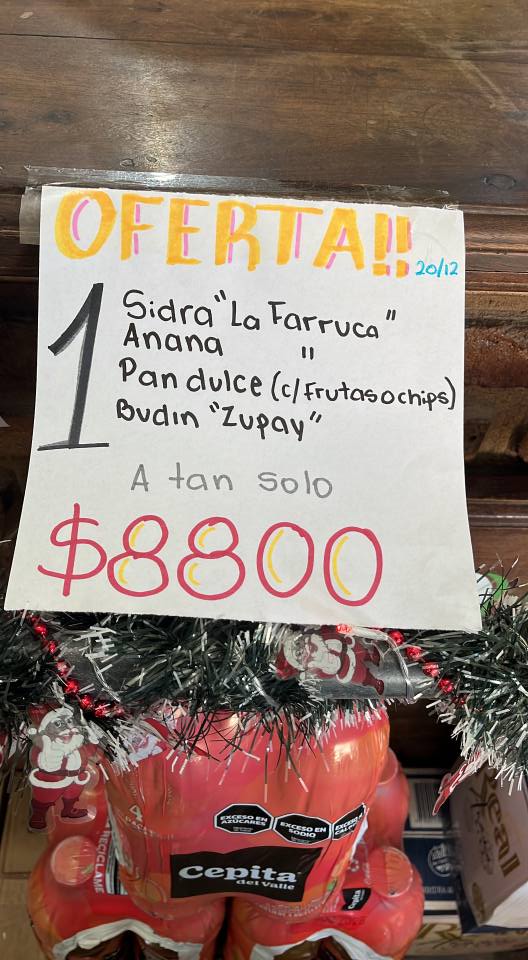 OFERTA!!
20/12
1
Sidra "La Farruca"
Anana "
Pan dulce (c/frutas o chips)
Budin "Zupay"
A tan solo
$8800
EXCESO EN AZÚCARES
EXCESO EN SODIO
EXCESO
Cepita
del Valle
RECICLAME
Cepita